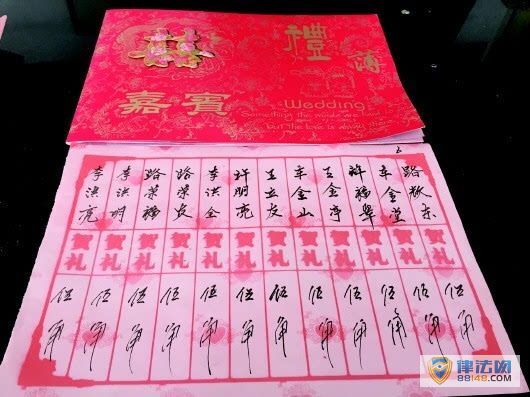 囍
禮薄
嘉賓
Wedding
路敬东 贺礼 伍角
车金堂 贺礼 伍角
许福翠 贺礼 伍角
王金亭 贺礼 伍角
车金山 贺礼 伍角
王立友 贺礼 伍角
许明亮 贺礼 伍角
李洪全 贺礼 伍角
路荣友 贺礼 伍角
路荣福 贺礼 伍角
李洪明 贺礼 伍角
李洪亮 贺礼 伍角
律法网
88148.com